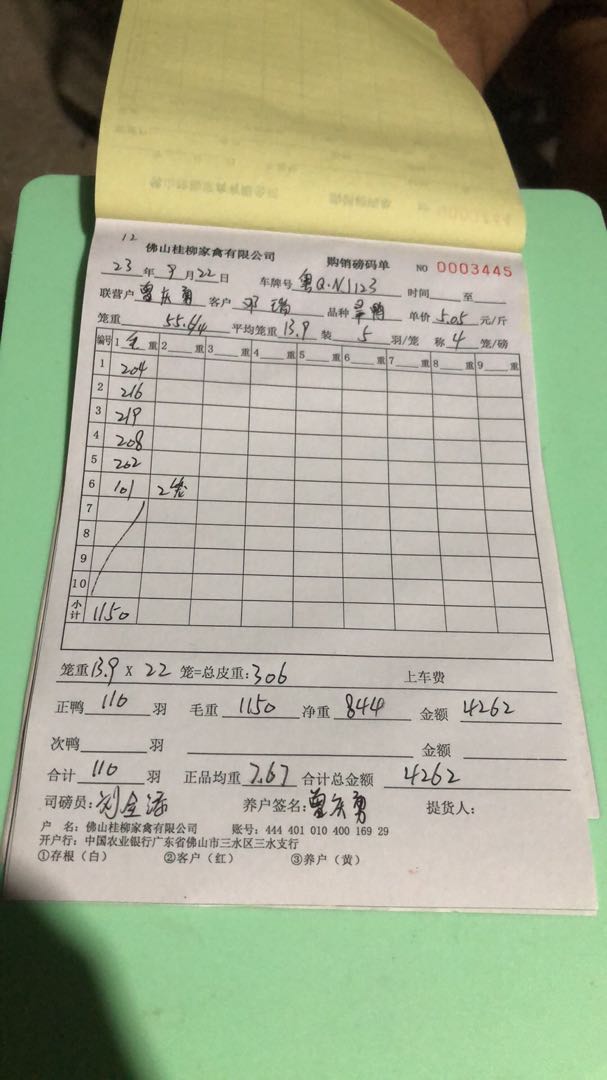 12
佛山桂柳家禽有限公司 购销磅码单 NO 0003445
23年9月22日 车牌号 粤Q·N1123 时间 至
联营户 曾庆勇 客户 邓瑞 品种 单价 5.05 元/斤
笼重 55.6/4 平均笼重 13.9 装 5 羽/笼 称 4 笼/磅
编号 1 毛 重 2 重 3 重 4 重 5 重 6 重 7 重 8 重 9 重
1 204
2 216
3 219
4 208
5 202
6 101 2笼
7
8
9
10
小计 1150
笼重 13.9 X 22 笼=总皮重: 306 上车费
正鸭 110 羽 毛重 1150 净重 844 金额 4262
次鸭 羽 金额
合计 110 羽 正品均重 7.67 合计总金额 4262
司磅员: 刘 养户签名: 曾庆勇 提货人:
户 名: 佛山桂柳家禽有限公司 账号: 444 401 010 400 169 29
开户行: 中国农业银行广东省佛山市三水区三水支行
①存根(白) ②客户(红) ③养户(黄)